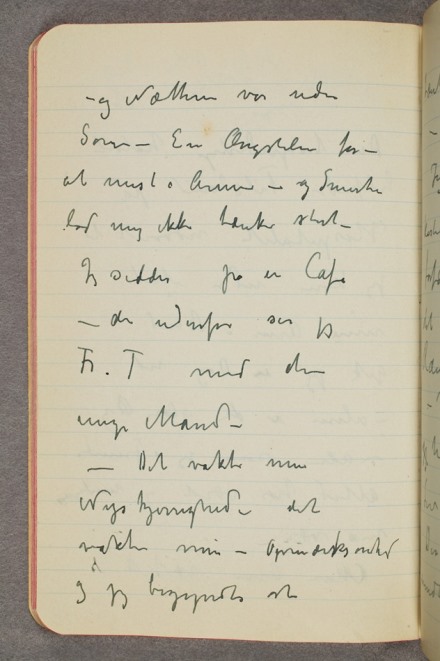 – og Nætterne var uden
Søvn – En Angstelse for –
at miste Armen – og Smerten
lod mig ikke tænke stort –
Jg sidder på en Cafe
– der udenfor ser jg
Fr. T med den
unge Mand –
– Det vakte min
Nysgjerrighed – det
vakte min – Opmærksomhed
og jg begyndte at